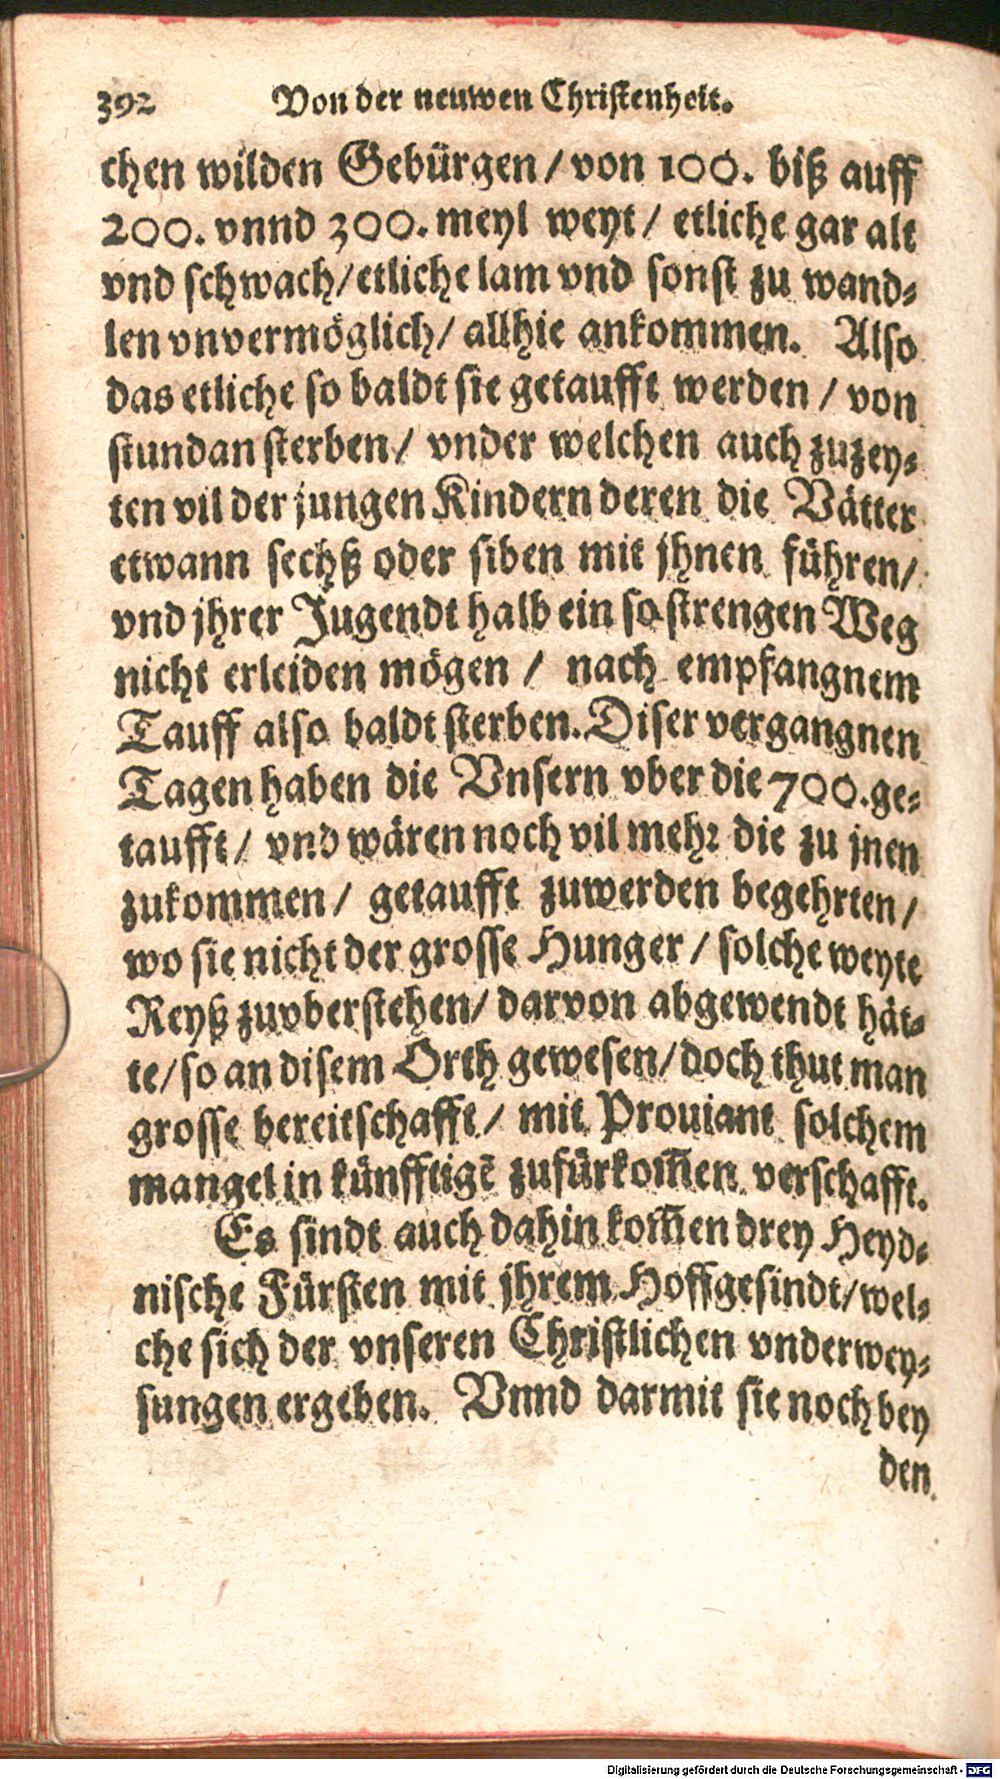 392 Von der neuwen Christenheit.
chen wilden Gebürgen / von 100. biß auff
200. vnnd 300. meyl weyt / etliche gar alt
vnd schwach / etliche lam vnd sonst zu wand-
len vnvermöglich / allhie ankommen. Also
das etliche so baldt sie getaufft werden / von
stundan sterben / vnder welchen auch zuzey-
ten vil der jungen Kindern deren die Vätter
etwann sechß oder siben mit jhnen führen /
vnd jhrer Jugendt halb ein so strengen Weg
nicht erleiden mögen / nach empfangnem
Tauff also baldt sterben. Diser vergangnen
Tagen haben die Vnsern vber die 700. ge-
taufft / vnd wären noch vil mehr die zu jnen
zukommen / getaufft zuwerden begehrten /
wo sie nicht der grosse Hunger / solche weyte
Reyß zuvberstehen / darvon abgewendt hät-
te / so an disem Orth gewesen / doch thut man
grosse bereitschafft / mit Prouiant solchem
mangel in künfftigē zufürkom̄en verschafft.
Es sindt auch dahin kom̄en drey Heyd-
nische Fürsten mit jhrem Hoffgesindt / wel-
che sich der vnseren Christlichen vnderwey-
sungen ergeben. Vnnd darmit sie noch bey
den
Digitalisierung gefördert durch die Deutsche Forschungsgemeinschaft - DFG